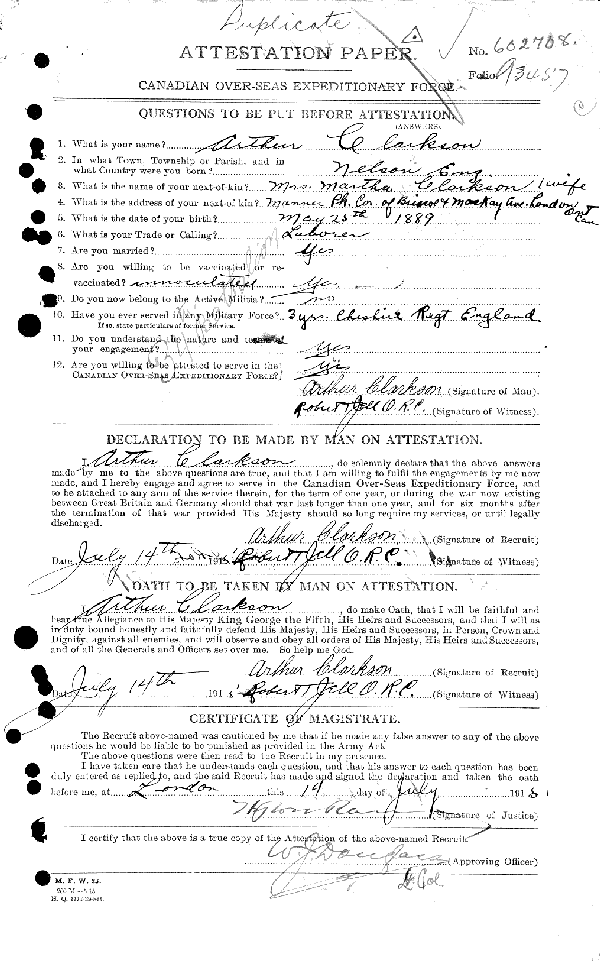 Duplicate
ATTESTATION PAPER.
No. 602708.
Folio.
CANADIAN OVER-SEAS EXPEDITIONARY FORCE.
QUESTIONS TO BE PUT BEFORE ATTESTATION.
(ANSWERS)
1. What is your name? Arthur Clarkson
2. In what Town, Township or Parish, and in
what Country were you born? Nelson Eng.
3. What is the name of your next-of-kin? Mrs. Martha Clarkson wife
4. What is the address of your next-of-kin? Ph. Cor. of & MacKay Ave. London Ont Can
5. What is the date of your birth? May 25th 1889
6. What is your Trade or Calling? Laborer
7. Are you married? Yes
8. Are you willing to be vaccinated or re-
vaccinated? innoculated Yes
9. Do you now belong to the Active Militia? no
10. Have you ever served in any Military Force? 3 yrs. Cheshire Regt England
If so, state particulars of former Service.
11. Do you understand the nature and terms of
your engagement? Yes
12. Are you willing to be attested to serve in the
CANADIAN OVER-SEAS EXPEDITIONARY FORCE? Yes
Arthur Clarkson (Signature of Man).
Robert Jell O.R.C. (Signature of Witness).
DECLARATION TO BE MADE BY MAN ON ATTESTATION.
I, Arthur Clarkson, do solemnly declare that the above answers
made by me to the above questions are true, and that I am willing to fulfil the engagements by me now
made, and I hereby engage and agree to serve in the Canadian Over-Seas Expeditionary Force, and
to be attached to any arm of the service therein, for the term of one year, or during the war now existing
between Great Britain and Germany should that war last longer than one year, and for six months after
the termination of that war provided His Majesty should so long require my services, or until legally
discharged.
Arthur Clarkson (Signature of Recruit)
Date July 14th 1915 Robert Jell O.R.C. (Signature of Witness)
OATH TO BE TAKEN BY MAN ON ATTESTATION.
I, Arthur Clarkson, do make Oath, that I will be faithful and
bear true Allegiance to His Majesty King George the Fifth, His Heirs and Successors, and that I will as
in duty bound honestly and faithfully defend His Majesty, His Heirs and Successors, in Person, Crown and
Dignity, against all enemies, and will observe and obey all orders of His Majesty, His Heirs and Successors,
and of all the Generals and Officers set over me. So help me God.
Arthur Clarkson (Signature of Recruit)
Date July 14th 191 Robert Jell O.R.C. (Signature of Witness)
CERTIFICATE OF MAGISTRATE.
The Recruit above-named was cautioned by me that if he made any false answer to any of the above
questions he would be liable to be punished as provided in the Army Act.
The above questions were then read to the Recruit in my presence.
I have taken care that he understands each question, and that his answer to each question has been
duly entered as replied to, and the said Recruit has made and signed the declaration and taken the oath
before me, at London this 14 day of July 1915
(Signature of Justice)
I certify that the above is a true copy of the Attestation of the above-named Recruit.
(Approving Officer)
Lt Col
M. F. W. 23.